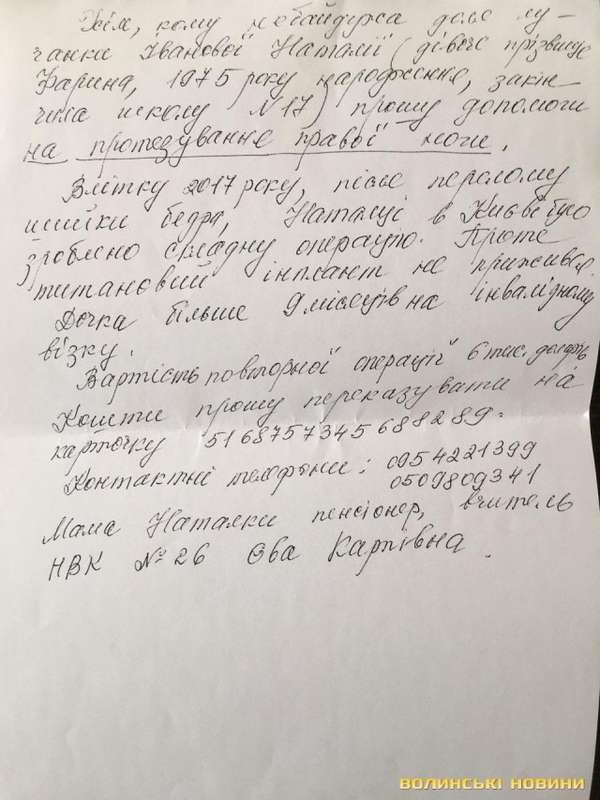 Усім, кому небайдужа доля лу-
чанки Іванової Наталії (дівоче прізвище
Фарина, 1975 року народження, закін-
чила школу №17) прошу допомоги
на протезування правої ноги.
Влітку 2017 року, після перелому
шийки бедра, Наталці в Києві було
зроблено складну операцію. Проте
титановий імплант не прижився
Дочка більше 9 місяців на інвалідному
візку.
Вартість повторної операції 6 тис. доларів
Кошти прошу переказувати на
карточку 5168757345688289.
Контактні телефони: 0954221399
0509809341
Мама Наталки пенсіонер, вчитель
НВК №26 Єва Карпівна.
ВОЛИНСЬКІ НОВИНИ